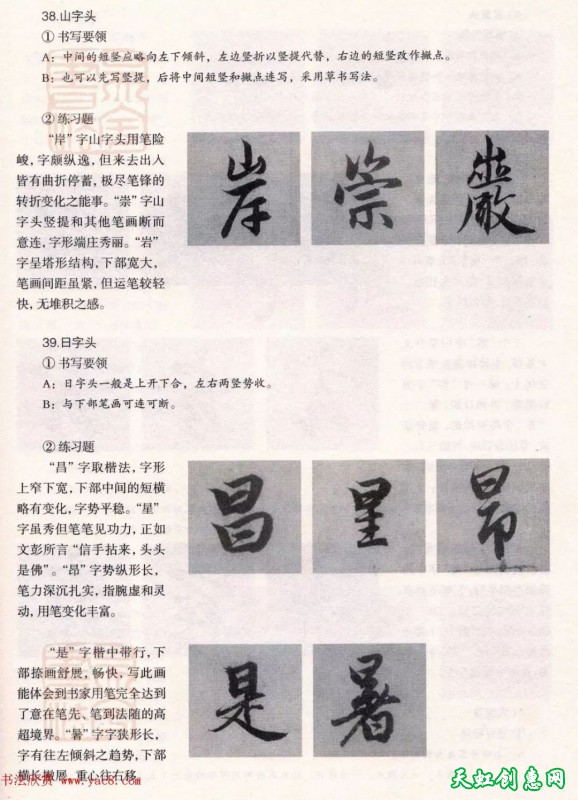 38.山字头
①书写要领
A：中间的短竖应略向左下倾斜，左边竖折以竖提代替，右边的短竖改作撇点。
B：也可以先写竖提，后将中间短竖和撇点连写，采用草书写法。
②练习题
“岸”字山字头用笔险
峻，字颇纵逸，但来去出入
皆有曲折停蓄，极尽笔锋的
转折变化之能事。“崇”字山
字头竖提和其他笔画断而
意连，字形端庄秀丽。“岩”
字呈塔形结构，下部宽大，
笔画间距虽紧，但运笔较轻
快，无堆积之感。
岸 崇 巖
39.日字头
①书写要领
A：日字头一般是上开下合，左右两竖势收。
B：与下部笔画可连可断。
②练习题
“昌”字取楷法，字形
上窄下宽，下部中间的短横
略有变化，字势平稳。“星”
字虽秀但笔笔见功力，正如
文彭所言“信手拈来，头头
是佛”。“昂”字势纵形长，
笔力深沉扎实，指腕虚和灵
动，用笔变化丰富。
昌 星 昂
“是”字楷中带行，下
部捺画舒展，畅快，写此画
能体会到书家用笔完全达到
了意在笔先、笔到法随的高
超境界。“暑”字字狭形长，
字有往左倾斜之趋势，下部
横长撇展，重心往右移。
是 暑
书法欣赏 www.yac8.com
天虹创意网